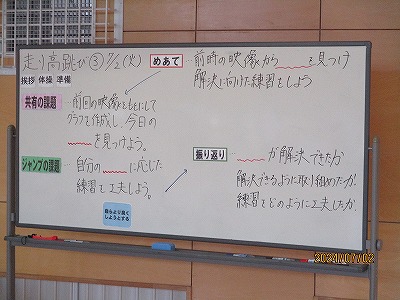 走り高跳び③ 7/2(火)
めあて…前時の映像から〰を見つけ
解決に向けた練習をしよう
挨拶 体操 準備
共有の課題…前回の映像をもとにして
グラフを作成し、今日の
〰を見つけよう。
ジャンプの課題…自分の〰に応じた
練習を工夫しよう。
振り返り…〰が解決できたか
解決できるように取り組めたか
練習をどのように工夫したか
自らより良く
しようとする
2024/07/02